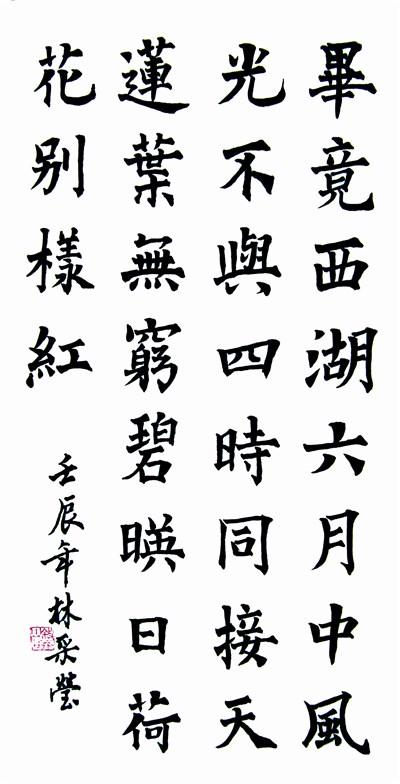 畢竟西湖六月中風
光不與四時同接天
蓮葉無窮碧暎日荷
花別樣紅
壬辰年林采瑩